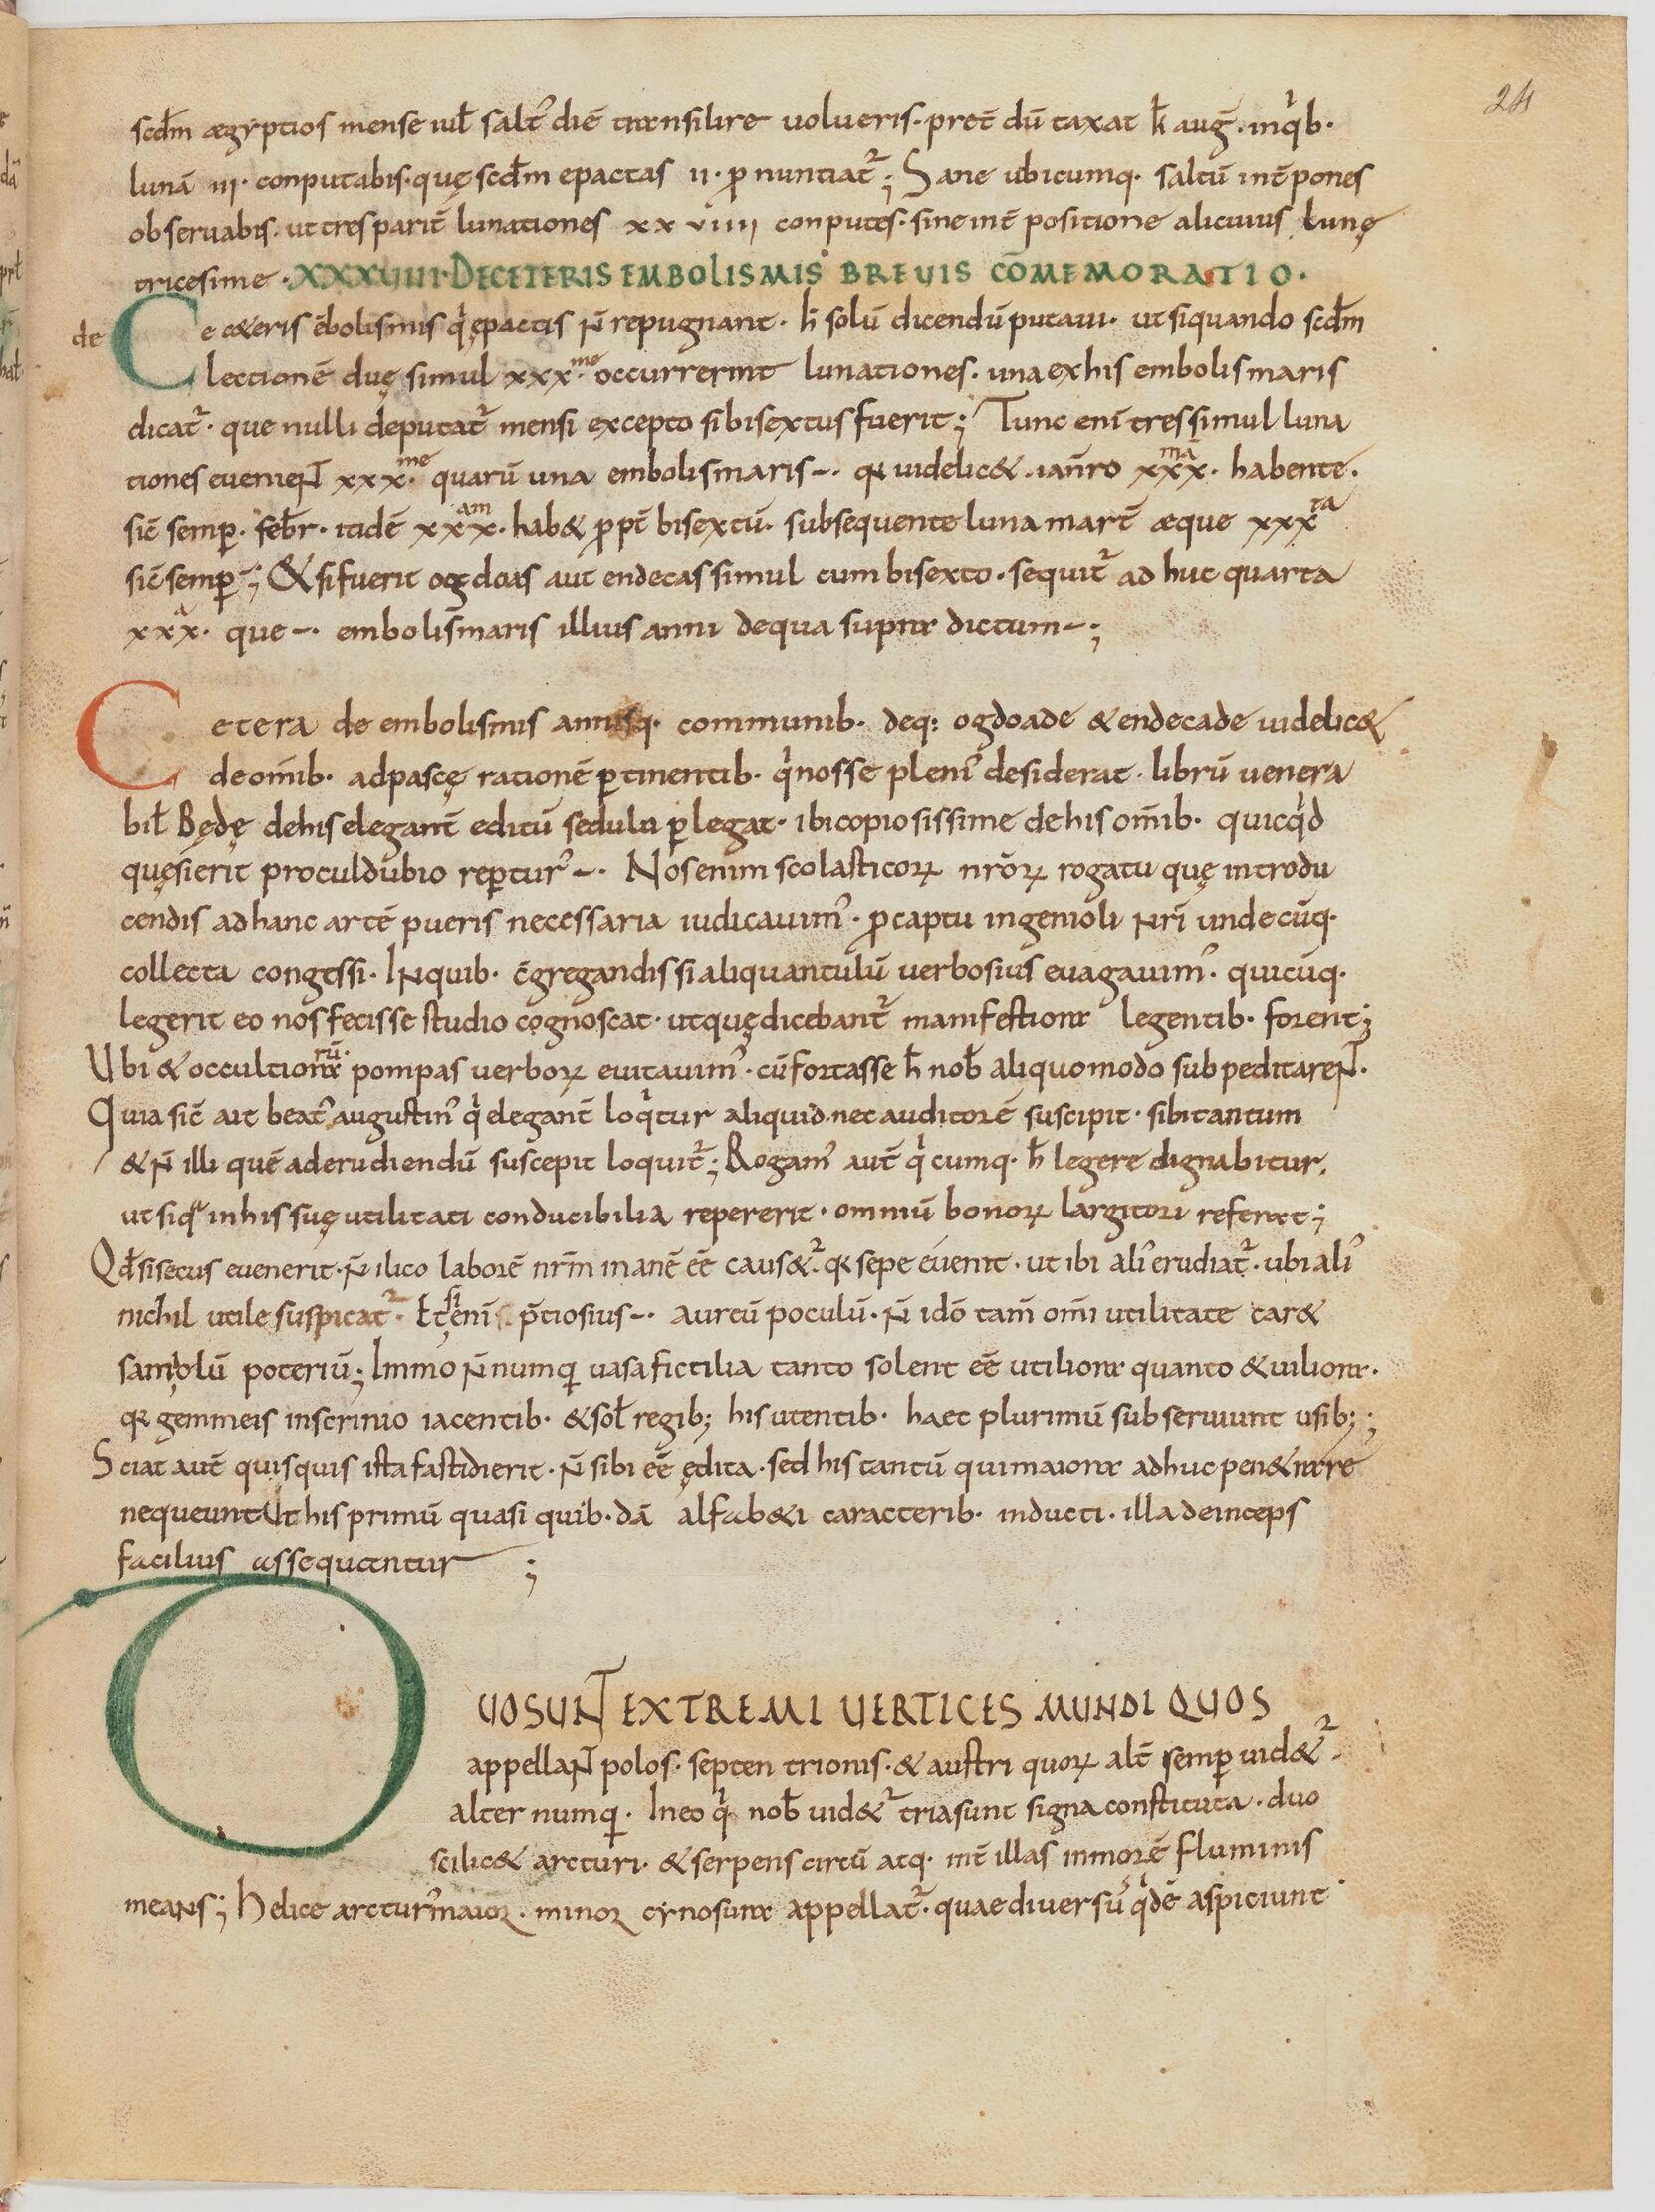 24
scđm ægyptios mense iul̄ saltꝰ diē transilire uolueris· pret̄ dū taxat k̄ aug̅· inqͥb·
lunā iii· conputabis· quę scđm epactas ii· ꝓ nuntiat᷑; Sane ubicumq· saltū int̄pones
obseruabis· ut tres parit̄ lunationes xxviiii conputes· sine int̄ positione alicuius lunę
tricesime· XXXVIIII· DE CETERIS EMBOLISMIS BREUIS CŌMEMORATIO·
de Ce c&eris ēbolismis qͥ epactis N̄ repugnant· h̄ solū dicendū putaui· ut siquando scđm
lectionē duę simul xxx·ᵐᵉ occurrerint lunationes· una ex his embolismaris
dicat᷑· que nulli deputat᷑ mensi excepto si bisextus fuerit; Tunc enī tres simul luna
tiones eueniēN̄T xxx·ᵐᵉ quarū una embolismaris ÷· qꝛ uidelic& · ian̄ro xxx·ᵐᵃ habente·
sic̄ semꝑ· feb̄r· itidē xxx·ᵃᵐ hab& ꝓpt̄ bisextū· subsequente luna mart̄ æque xxxᵗᵃ
sic̄ semꝑ ÷; & si fuerit ogdoas aut endecas simul cum bisexto· sequit᷑ ad huc quarta
xxx·ᵃ que ÷· embolismaris illius anni de qua supra dictum ÷;
Cetera de embolismis annisq· communib· deq: ogdoade & endecade uidelic&
de om̄ib· ad pascę rationē ꝑtinentib· qͥ nosse pleniꝰ desiderat· librū uenera
bil̄ Będę de his elegant̄ editū sedulu ꝑlegat· ibi copiosissime de his om̄ib· quicqͥd
quęsierit procul dubio reꝑturꝰ ÷· Nos enim scolasticoꝝ nr̄oꝝ rogatu quę introdu
cendis ad hanc artē pueris necessaria iudicauimꝰ· ꝓ captu ingenioli Nr̄i undecūq·
collecta congessi· INquib· c̄gregandis si aliquantulū uerbosius euagauimꝰ· quicūq·
legerit eo nos fecisse studio cognoscat· ut quę dicebant᷑ manifestiora legentib· forent;
Ubi & occultiorarū· pompas uerboꝝ euitauimꝰ· cū fortasse h̄ nob̄ aliquomodo subpeditareNT·
Quia sic̄ ait beatꝰ augustinꝰ qͥ elegant̄ loqͥtur aliquid· nec auditorē suscipit· sibi tantum
& N̄ illi quē ad erudiendū suscepit loquit᷑; Rogamꝰ aut̄ qͥcumq· h̄ legere dignabitur·
ut siqͣ in his suę utilitati conducibilia repererit· omniū bonoꝝ largitori referat;
Qđ si secus euenerit· N̄ ilico laborē nr̄m inanē ēē caus&᷑· qꝛ sepe euenit· ut ibi aliꝰ erudiat᷑· ubi aliꝰ
nichil utile suspicat᷑· Etsi enī p̄tiosius ÷· aureū poculū· N̄ idō tam̄ om̄i utilitate car&
sambolū poteriū; Immo N̄numqͣ uasa fictilia tanto solent ēē utiliora quanto & uiliora·
qꝛ gemmeis in scrinio iacentib· & sol̄ regib; his utentib· haec plurimū subseruiunt usib;;
Sciat aut̄ quisquis ista fastidierit· N̄ sibi ēē ędita· sed his tantū qui maiora adhuc penetrare
nequeunt Ut his primū quasi quib·dā alfab&i caracterib· inducti· illa deinceps
facilius assequantur ;
DUO SUNT EXTREMI UERTICES MUNDI QUOS
appellaNT polos· septentrionis· & austri quoꝝ alt̄ semꝑ uid&᷑·
alter numqͣ· In eo qͥ nob̄ uid&᷑ tria sunt signa constituta· duo
scilic& arcturi· & serpens circū atq· int̄ illas inmorē fluminis
meaNs; Helice arcturꝰ maior· minor cynosura appellat᷑· quae diuersū qͥdē aspiciunt